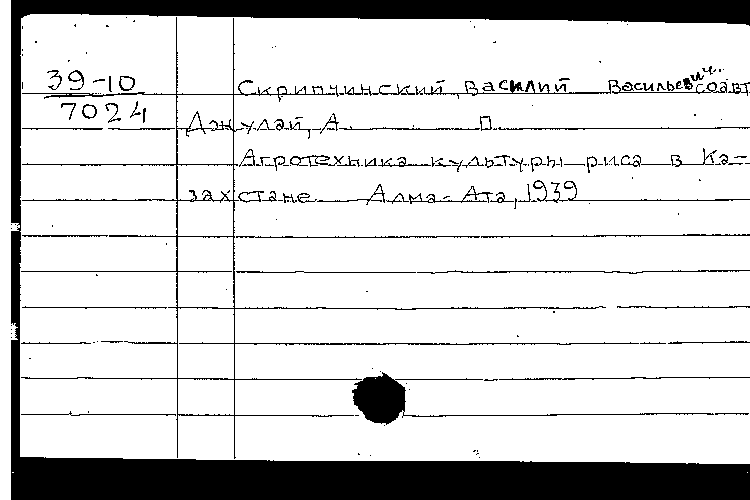 39-10
7024
Скрипчинский, Василий Васильевич. соавт
Джулай, А. П.
Агротехника культуры риса в Ка-
захстане. Алма-Ата, 1939